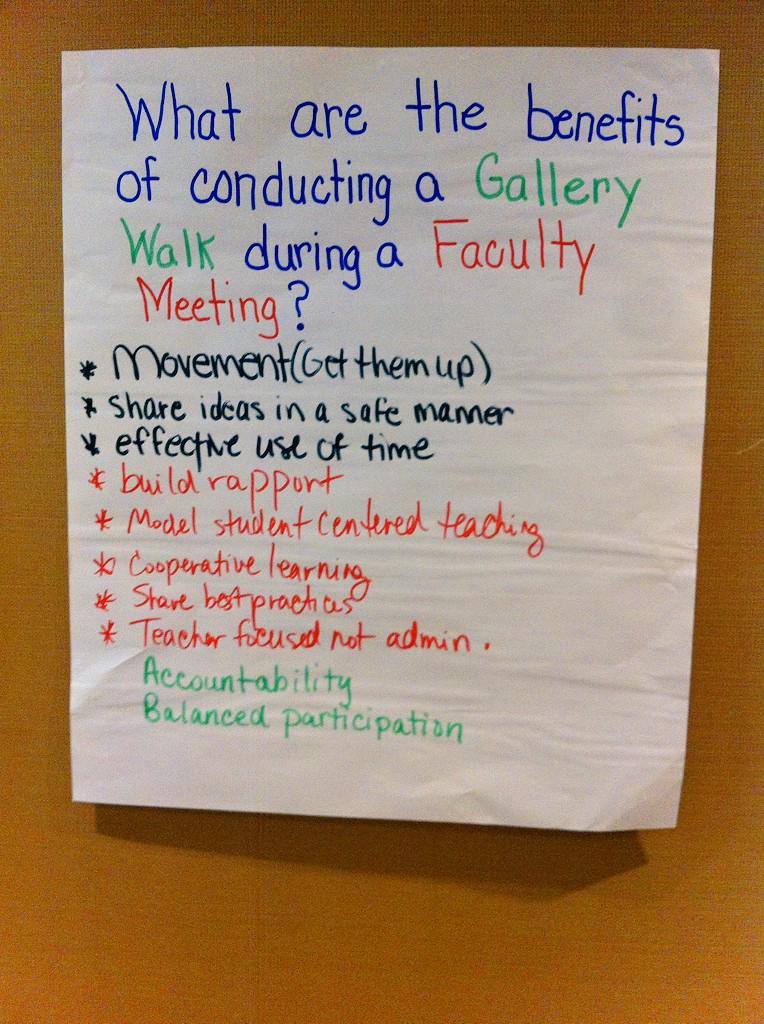 What are the benefits
of conducting a Gallery
Walk during a Faculty
Meeting?
* Movement (Get them up)
* share ideas in a safe manner
* effective use of time
* build rapport
* Model student centered teaching
* Cooperative learning
* Share best practices
* Teacher focused not admin.
Accountability
Balanced participation